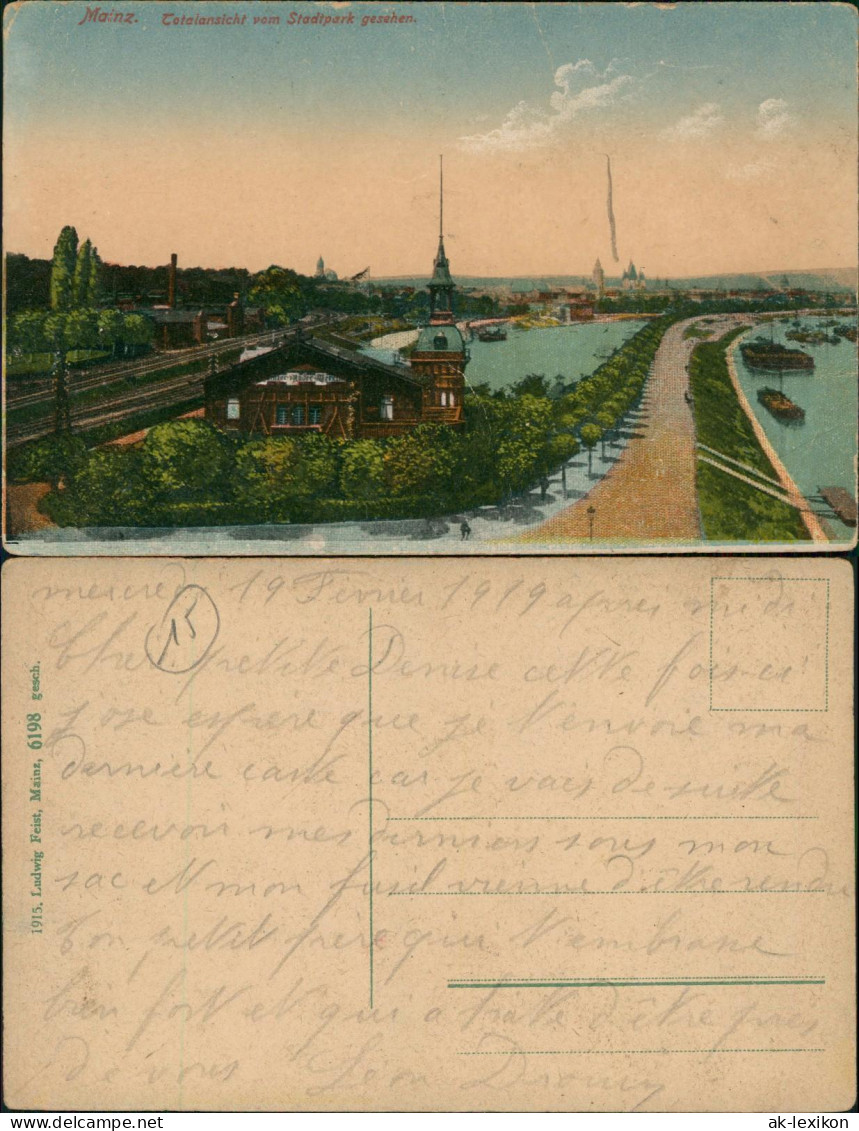 Mainz. Totalansicht vom Stadtpark gesehen.
mercredi 19 Fevrier 1919 apres midi
15
Cher petite Denise cette fois-ci
j'ose espere que je t'envoie ma
derniere carte car je vais de suite
recevoir mes derniers sous mon
sac et mon fusil vienne d'être rendu
Ton petit frere qui t'embrasse
bien fort et qui a hate d'être pres
de vous Léon Drouin
1915. Ludwig Feist, Mainz, 6198 gesch.
delcampe.net
ak-lexikon